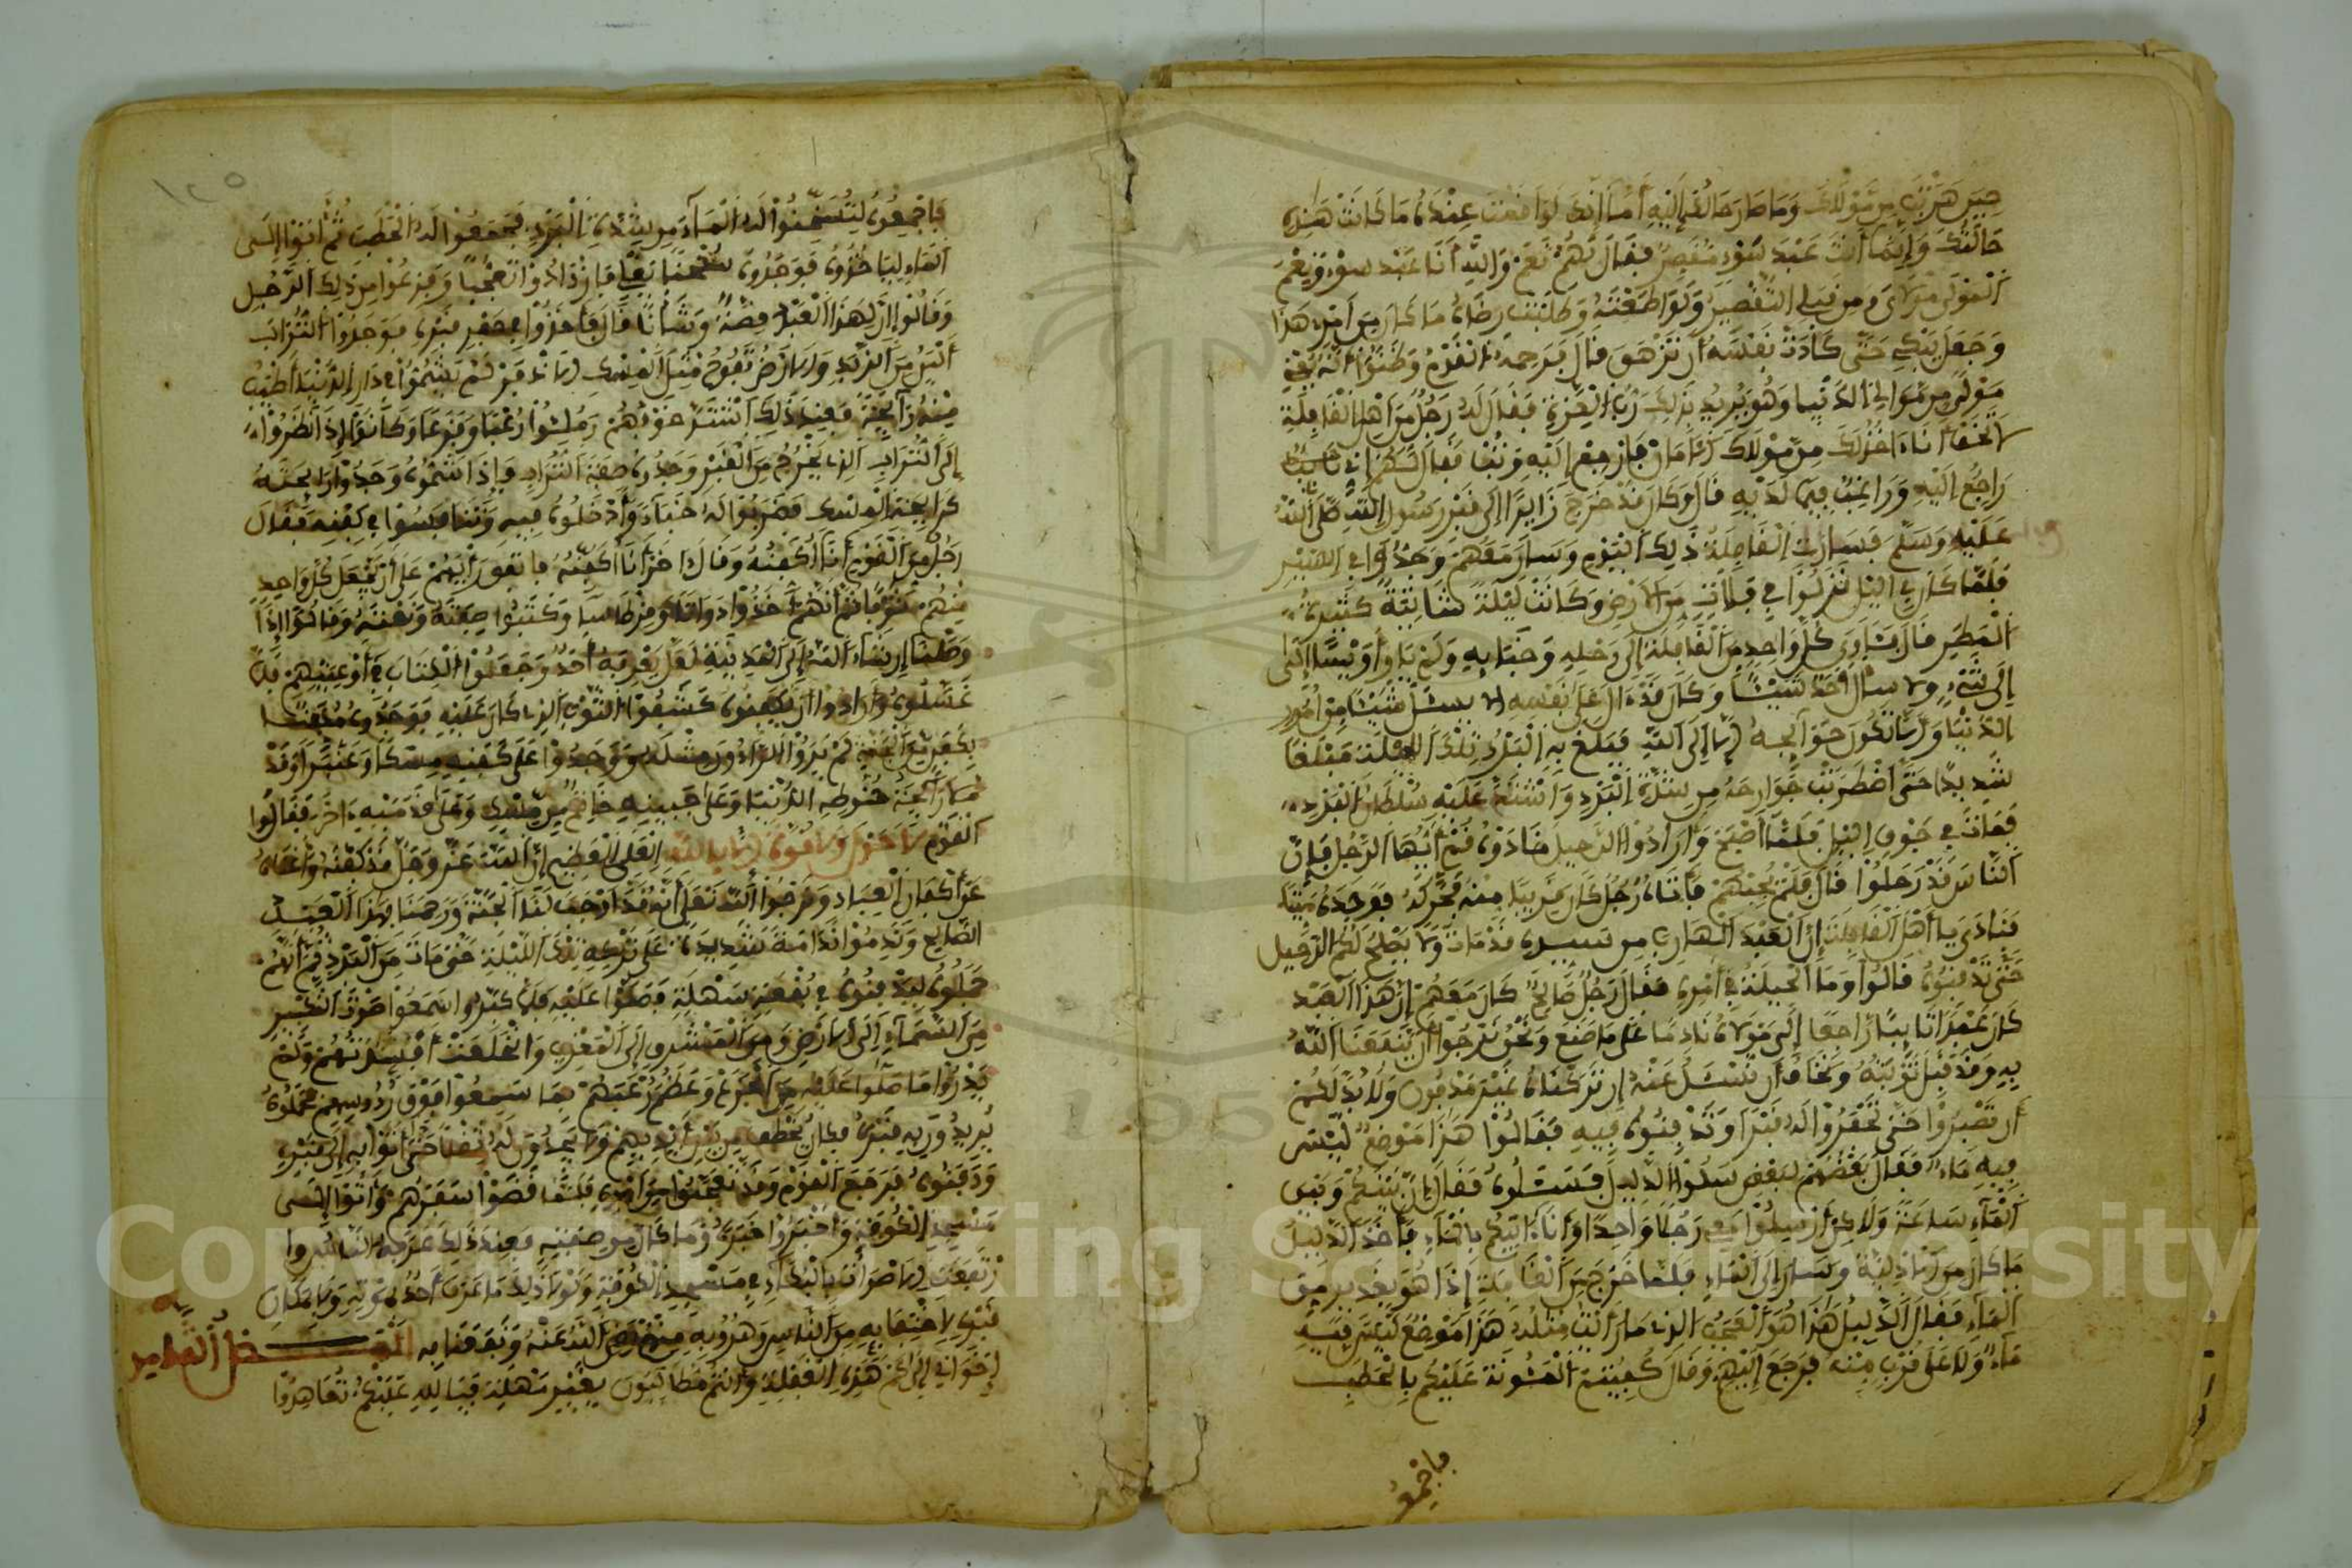 حين هربت من مولاك وما صار حالك إليه أما إنك لو أقمت عنده ما كانت هذه
حالتك وإنما أنت عبد سوء مقصر فقال لهم نعم والله أنا عبد سوء ونعم
المولى مولاي ومن قبلي التقصير ولو أطعته وطلبت رضاه ما كان من أمري هذا
وجعل يبكي حتى كادت نفسه أن تزهق قال فرحمه القوم وظنوا أنه يعني
مولى من موالي الدنيا وهو يريد بذلك رب العزة فقال له رجل من أهل القافلة
لا تخف أنا ءاخذ لك من مولاك الأمان فارجع إليه وتب فقال لهم إني تايب
راجع إليه وراغب فيما لديه قال وكان قد خرج زايرا إلى قبر رسول الله صلى الله
عليه وسلم فسارت القافلة ذلك اليوم وسار معهم وجدوا في السير
فلما كان في اليل نزلوا في فلات من الأرض وكانت ليلة شاتية كثيرة
المطر قال فأوى كل واحد من القافلة إلى رحله وخبايه ولم يأو أويس إلى
إلى شيء ولا سأل أحد شيئا وكان قد ءالى على نفسه لا يسئل شيئا من أمور
الدنيا وإنما تكون حوايجه إلى الله فبلغ به البرد تلك الليلة مبلغا
شديدا حتى اضطربت جوارحه من شدة البرد واشتد عليه سلطان البرد
فمات في جوف اليل فلما أصبح وأرادوا الرحيل نادوه قم أيها الرجل فإن
الناس قد رحلوا قال فلم يجبهم فأتاه رجل كان قريبا منه فحركه فوجده ميتا
فنادى يا أهل القافلة إن العبد الهارب من سيده قد مات ولا يصلح لكم الرحيل
حتى تدفنوه قالوا وما الحيلة في أمره فقال رجل صالح كان معهم إن هذا العبد
كان عبدا تايبا راجعا إلى مولاه نادما على ما صنع ونحن نرجوا أن ينفعنا الله
به وقد قبل توبته ونخاف أن نسئل عنه إن تركناه غير مدفون ولا بد لكم
أن تصبروا حتى تحفروا له قبرا وتدفنوه فيه فقالوا هذا موضع ليس
فيه ماء فقال بعضهم لبعض سلوا الدليل فسئلوه فقال إن بينكم وبين
الماء ساعة ولاكن أرسلوا معي رجلا واحدا وأنا ءاتيكم بالماء فأخذ الدليل
ما كان من الأدلية وسار إلى الماء فلما خرج من القافلة إذا هو بغدير من
الماء فقال الدليل هذا هو العجب الذي ما رأيت مثله هذا موضع ليس فيه
ماء ولا على قرب منه فرجع إليهم وقال كفيتم المئونة عليكم بالحطب
فاجمعوه
فاجمعوه لتسخنوا له الماء من شدة البرد فجمعوا له الحطب ثم أتوا إلى
الماء ليأخذوه فوجدوه سخنا يغلي فازدادوا تعجبا وفزعوا من ذلك الرجل
وقالوا إن لهذا العبد قصة وشأنا قال فأخذوا في حفر قبره فوجدوا التراب
ألين من الزبد والأرض تفوح مثل المسك الأذفر لم يشموا في دار الدنيا أطيب
منه رايحة فعند ذلك اشتد خوفهم وملئوا رعبا وفزعا وكانوا إذا نظروا
إلى التراب الذي يخرج من القبر وجدوه صفة التراب وإذا شموه وجدوا رايحته
كرايحة المسك فضربوا له خباء وأدخلوه فيه وتنافسوا في كفنه فقال
رجل من القوم أنا أكفنه وقال ءاخر أنا أكفنه فاتفق رأيهم على أن يجعل كل واحد
منهم ثوبا ثم إنهم أخذوا دواة وقرطاسا وكتبوا صفته ونعته وقالوا إذا
وصلنا إن شاء الله إلى المدينة لعل يعرفه أحد وجعلوا الكتاب في أوعيتهم فلما
غسلوه وأرادوا أن يكفنوه كشفوا الثوب الذي كان عليه فوجدوه مكفنا
بكفن من الجنة لم يروا الراءون مثله ووجدوا على كفنه مسكا وعنبرا وقد
رايحة حنوطه الدنيا وعلى جبينه خاتم من مسك وعلى قدميه ءاخر فقالوا
القوم لا حول ولا قوة إلا بالله العلي العظيم إن الله عز وجل قد كفنه وأغناه
عن أكفان العباد ورجوا الله تعلى أنه قد أوجب لنا الجنة ورحمنا بهذا العبد
الصالح وندموا ندامة شديدة على تركه تلك الليلة حتى مات من البرد ثم إنهم
حملوه ليدفنوه في بقعة سهلة فصلوا عليه فلما كبروا سمعوا صوت التكبير
من السماء إلى الأرض ومن المشرق إلى المغرب وانخلعت أفئدتهم ولم
يدروا ما صلوا عليه من الجزع وعظم رعبهم مما سمعوا فوق رءوسهم فحملوه
يريدون به قبره فكان يخطف من بين أيديهم ولا يجدون له ثقلا حتى أتوا به إلى قبره
ودفنوه فرجع القوم وقد تعجبوا من أمره فلما قضوا سفرهم وأتوا إلى
مسجد الكوفة وأخبروا خبره وما كان من صفته فعند ذلك عرفه الناس
ارتفعت الأصوات بالبكاء في مسجد الكوفة ولولا ذلك ما عرف أحد بموته ولا مكان
قبره لاختفايه من الناس وهروبه منهم رضي الله عنه ونفعنا به
إخواني إلى كم هذه الغفلة وأنتم مطالبون بغير مهلة فبالله عليكم تعاهدوا